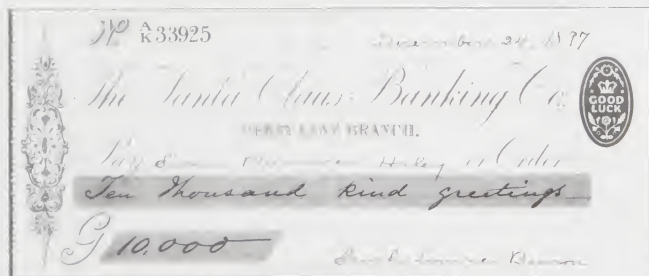 No A/K 33925
December 24, 1877
The Santa Claus Banking Co.
GOOD LUCK
DERBY LANE BRANCH.
Pay or Order
Ten Thousand kind greetings
G 10.000